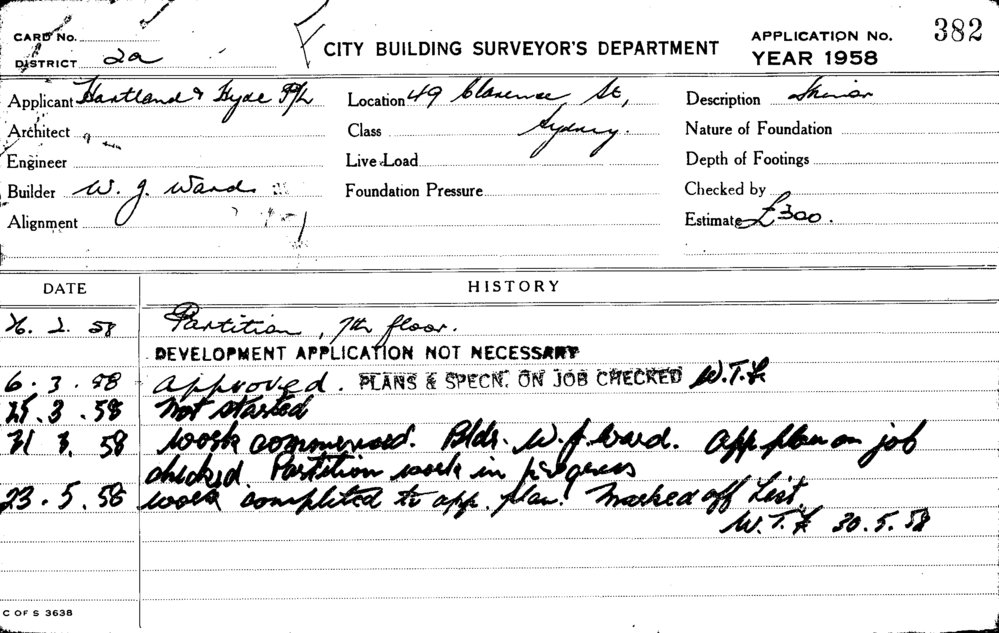 CARD No.
DISTRICT 2a
CITY BUILDING SURVEYOR'S DEPARTMENT
APPLICATION No. 382
YEAR 1958
Applicant Hartland & Hyde P/L
Location 49 Clarence St,
Sydney.
Description
Architect
Class
Nature of Foundation
Engineer
Live Load
Depth of Footings
Builder W. J. Ward
Foundation Pressure
Checked by
Alignment
Estimate £300.
DATE HISTORY
26. 2. 58 Partition, 7th floor.
DEVELOPMENT APPLICATION NOT NECESSARY
6. 3. 58 approved. PLANS & SPECN. ON JOB CHECKED W.T.F
25. 3. 58 not started
31 3. 58 work commenced. Bldr. W. J. Ward. app plan on job
checked. Partition work in progress
23. 5. 58 work completed to app. plan. Marked off List.
W.T.F 30.5.58
C OF S 3638